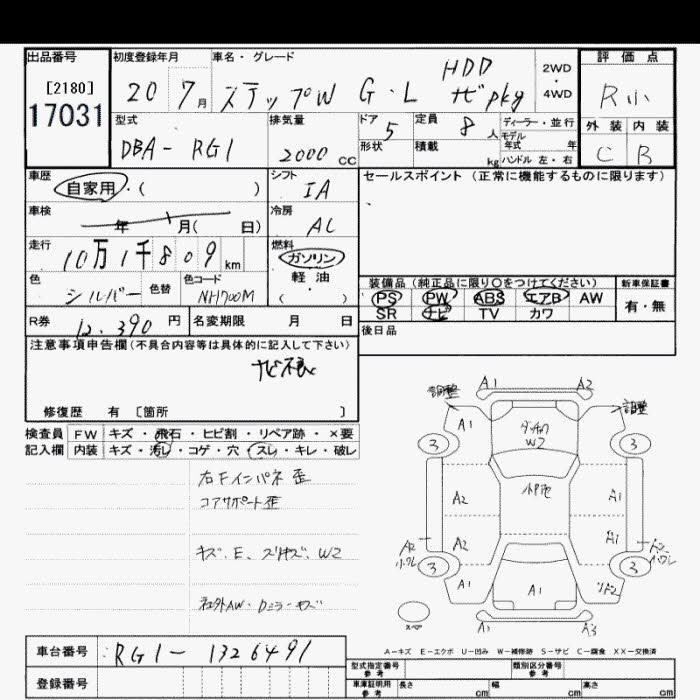 出品番号 初度登録年月 車名・グレード 評価点
[2180]
17031
20 7月 ステップW G・L HDD ナビpkg 2WD・4WD R小
型式 排気量 ドア 定員 ディーラー・並行 外装 内装
DBA- RG1 2000 CC 5 8人 モデル年式 年 C B
形状 積載 kg ハンドル 左・右
車歴 シフト セールスポイント (正常に機能するものに限ります)
自家用・( ) IA
車検 冷房
年 月( 日) AC
走行 燃料
10万1千809km ガソリン
軽・油
( )
色 色替 色コード 装備品 (純正品に限り〇をつけてください) 新車保証書
シルバー NH700M PS PW ABS エアB AW 有・無
SR ナビ TV カワ
R券 12,390円 名変期限 月 日 後日品
注意事項申告欄(不具合内容等は具体的に記入して下さい)
ナビ不良
修復歴 有 [箇所 ]
検査員 FW キズ・飛石・ヒビ割・リペア跡・×要
記入欄 内装 キズ・汚れ・コゲ・穴・スレ・キレ・破レ
右Fインパネ歪
コアサポート歪
キズ、E、スリキズ、W2
調整 A1 A2 調整
A1
W2
3 3
A2 A1
A2 A2 A1
3 3
A1 A1
スペア A1 A3
A-キズ E-エクボ U-凹み W-補修跡 S-サビ C-腐食 XX-交換済
車台番号 RG1-1326491
登録番号
型式指定番号 参考 類別区分番号 参考
車庫証明用 参考 長さ cm 幅 cm 高さ cm